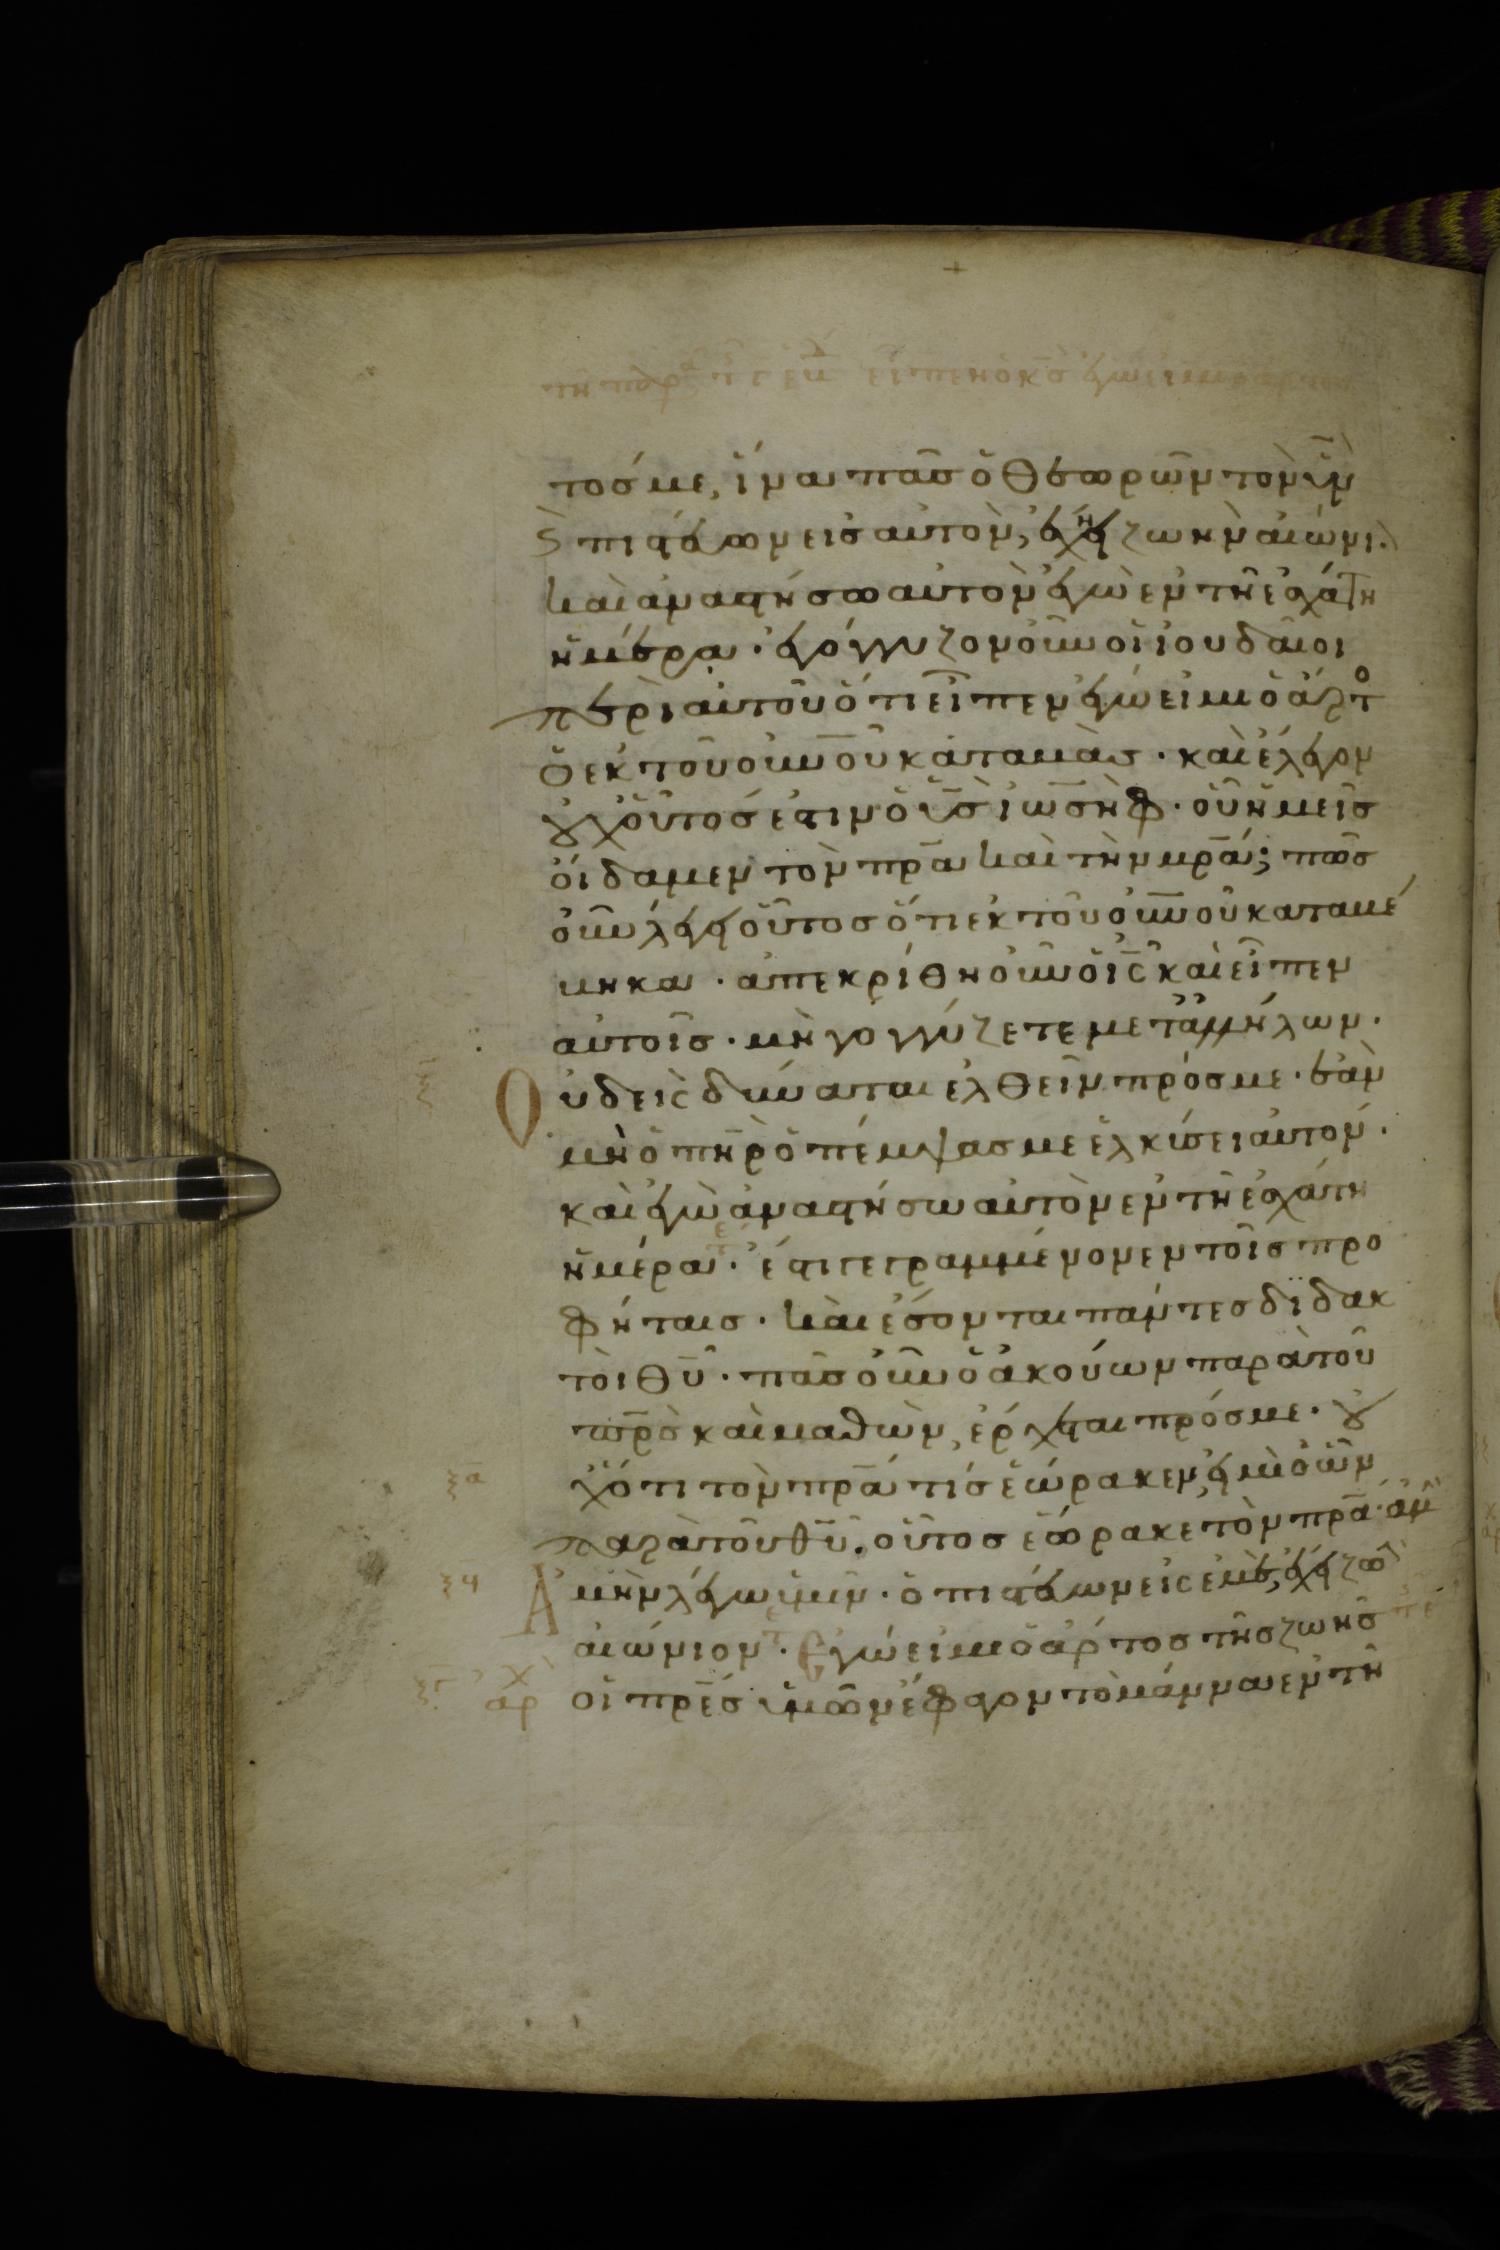 τοσ με, ἵνα πᾶσ ὁ θεωρῶν τὸν υ̅ν̅
κ̀ πιστεύων εἰσ αὐτὸν, ἔχῃ ζωὴν αἰώνι
καὶ ἀναστήσω αὐτὸν ἐγὼ ἐν τῆ ἐσχάτη
ἡμέρα · ἐγόγγυζον οὖν οἱ ἰουδαῖοι
περὶ αὐτοῦ ὅτι εἶπεν ἐγώ εἰμι ὁ ἄρτο
ὁ ἐκ τοῦ ο̅υ̅ν̅ο̅υ̅ καταβὰσ · καὶ ἔλεγον
οὐχ οὗτόσ ἐστιν ὁ υ̅σ̅ ἰωσὴφ · οὗ ἡμεῖσ
οἴδαμεν τὸν π̅ρ̅α̅ καὶ τὴν μ̅ρ̅α̅; πῶσ
οὖν λέγει οὗτοσ ὅτι ἐκ τοῦ ο̅υ̅ν̅ο̅υ̅ καταβέ
βηκα · ἀπεκρίθη οὖν ὁ ι̅ς̅ καὶ εἶπεν
αὐτοῖσ · μὴ γογγύζετε μετ' ἀλλήλων ·
ξ
Οὐδεὶς δύναται ἐλθεῖν πρόσ με · ἐὰν
μὴ ὁ π̅η̅ρ̅ ὁ πέμψασ με ἑλκύσει αὐτόν ·
καὶ ἐγὼ ἀναστήσω αὐτὸν ἐν τῆ ἐσχάτη
ἡμέρα · ἔστι γεγραμμένον ἐν τοῖσ προ
φήταισ · καὶ ἔσονται πάντεσ διδακ
τοὶ θ̅υ̅ · πᾶσ οὖν ὁ ἀκούων παρὰ τοῦ
π̅ρ̅σ̅ καὶ μαθὼν, ἔρχεται πρόσ με · οὐ
ξα χ' ὅτι τὸν π̅ρ̅α̅ τίσ ἑώρακεν, εἰ μὴ ὁ ὢν
παρὰ τοῦ θ̅υ̅, οὗτοσ ἑώρακε τὸν π̅ρ̅α̅ · ἀμὴ
Ἀμὴν λέγω ὑμῖν · ὁ πιστεύων εἰς ἐμὲ, ἔχει ζωὴ
αἰώνιον · Ἐγώ εἰμι ὁ ἄρτοσ τῆσ ζωῆσ
αρχ οἱ π̅ρ̅ε̅σ̅ ὑμῶν ἔφαγον τὸ μάννα ἐν τῆ